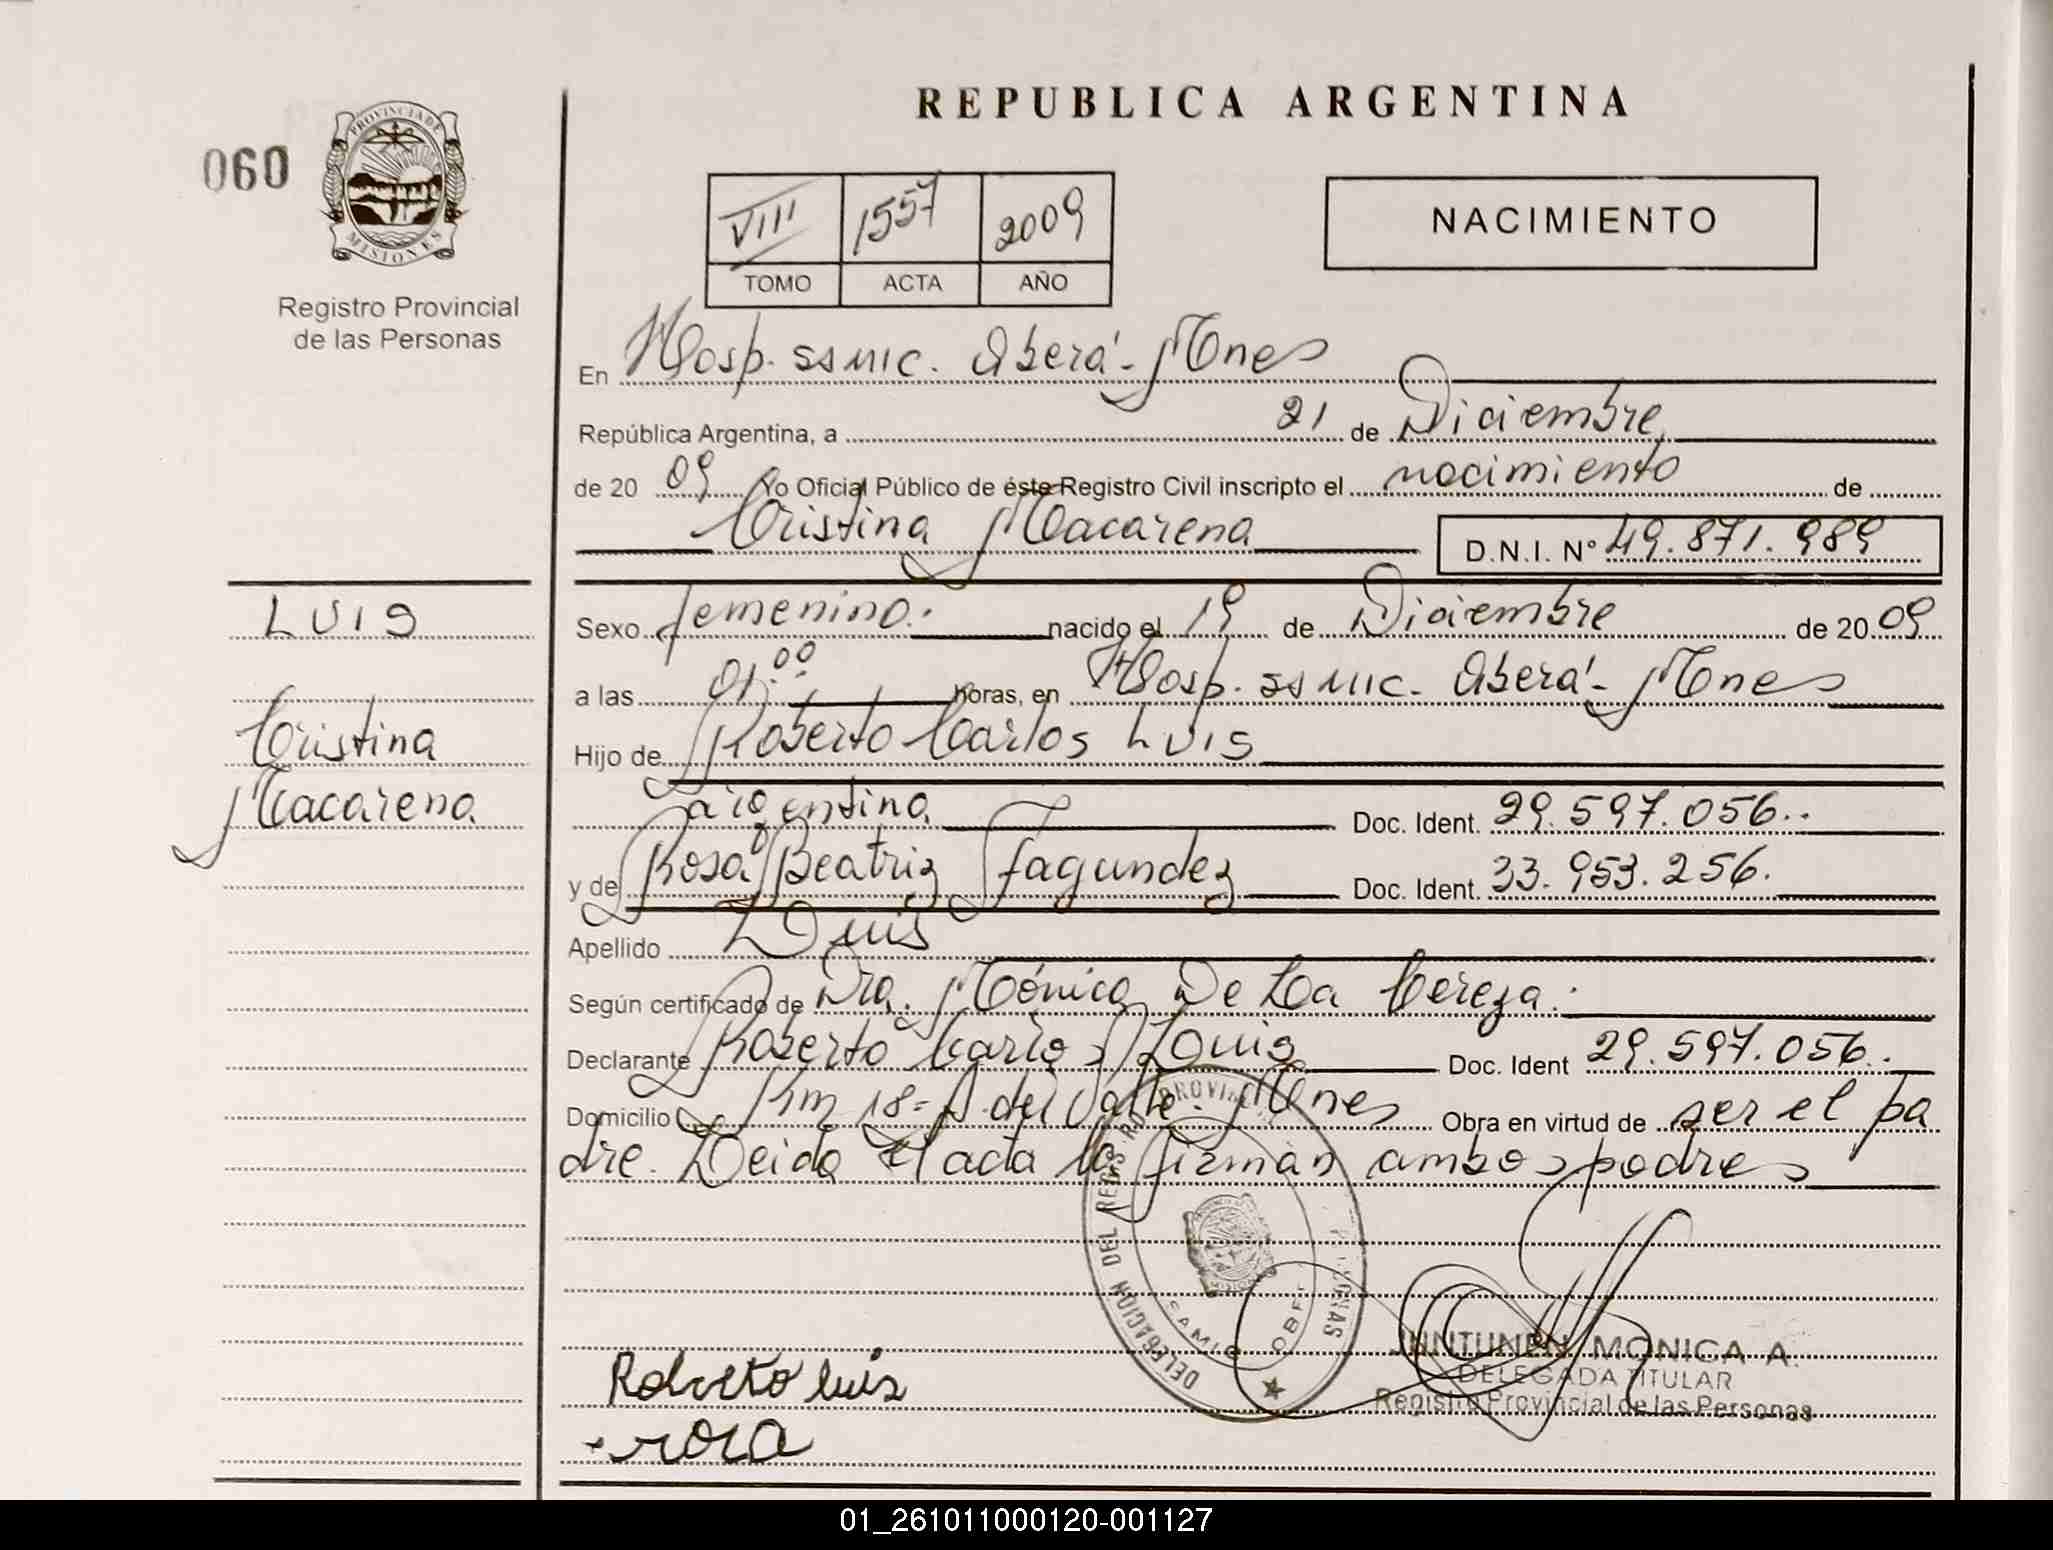 REPUBLICA ARGENTINA
060
PROVINCIA DE
MISIONES
Registro Provincial
de las Personas
VIII 1557 2009
TOMO ACTA AÑO
NACIMIENTO
En Hosp. SSMIC. Oberá - Mnes
República Argentina, a 21 de Diciembre
de 20 09 Yo Oficial Público de éste Registro Civil inscripto el nacimiento de
Cristina Macarena D.N.I. Nº 49.871.989
LUIS
Cristina
Macarena
Sexo femenino. nacido el 19 de Diciembre de 20 09
a las 01:00 horas, en Hosp. SSMIC. Oberá - Mnes
Hijo de Roberto Carlos LUIS
argentina Doc. Ident. 29.597.056..
y de Rosa Beatriz Fagundez Doc. Ident. 33.953.256.
Apellido Luis
Según certificado de Dra. Mónica De La Cereza.
Declarante Roberto Carlos Luis Doc. Ident 29.597.056.
Domicilio Km 18- A. del Valle. Mnes Obra en virtud de ser el pa
dre. Leida el acta la firman ambos padres
DELEGACION DEL REGISTRO PROVINCIAL PERSONAS
SAMIC OBERA
JUNTUNEN MONICA A.
DELEGADA TITULAR
Registro Provincial de las Personas
Roberto luis
rosa
01_261011000120-001127